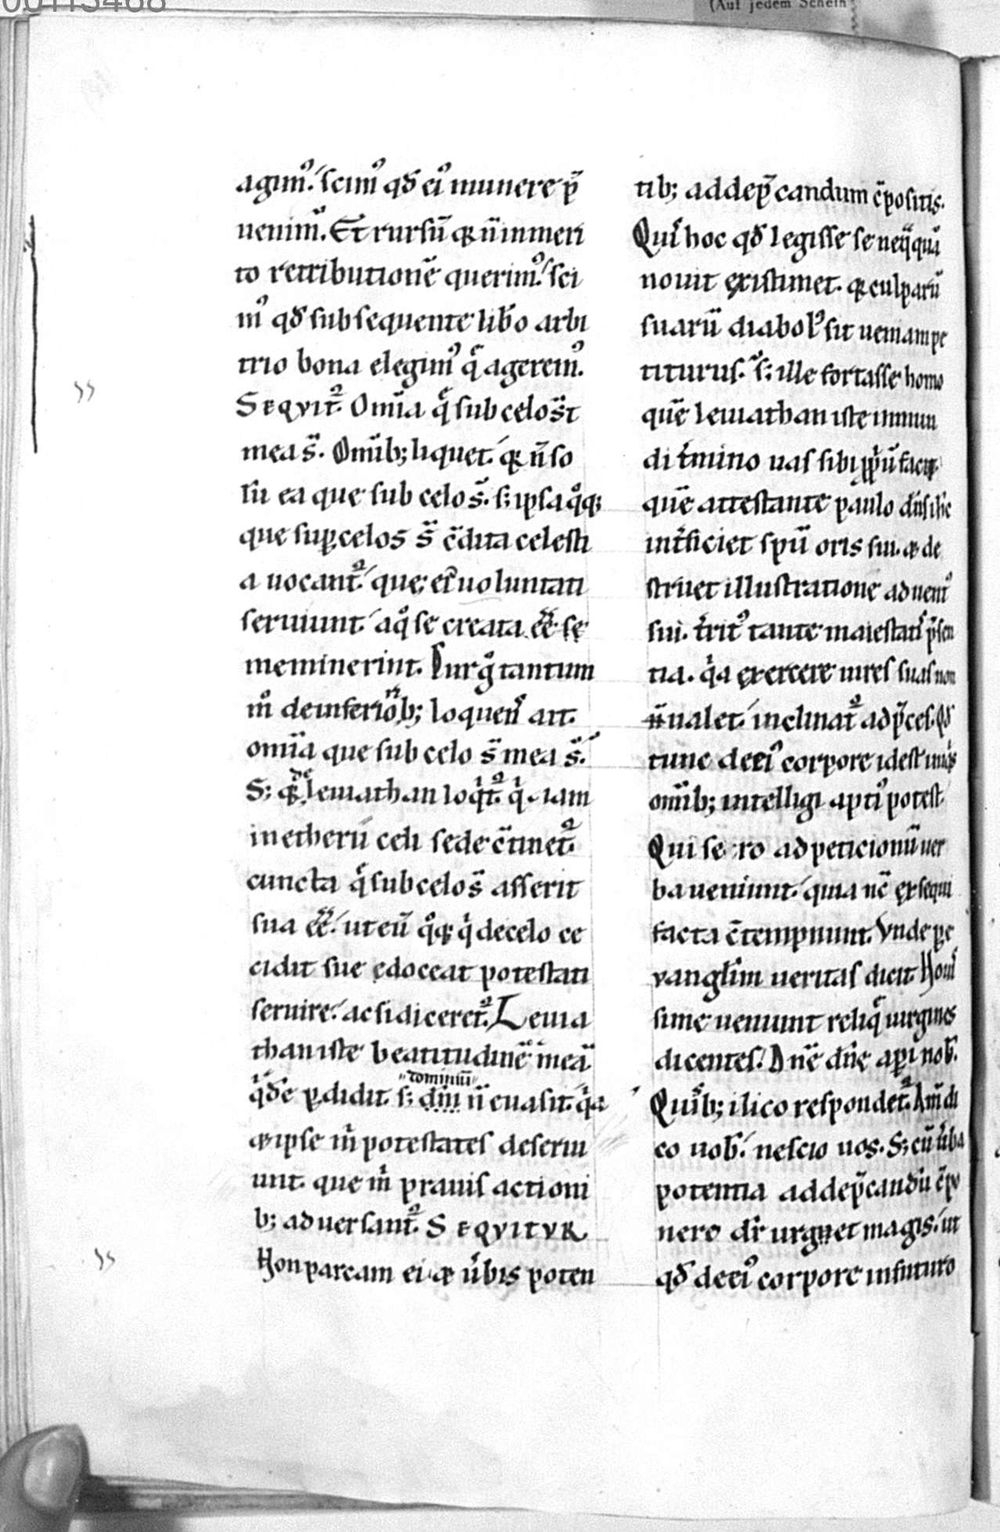 00113468
(Auf jedem Schein
agim᷒. scim᷒ qđ ei᷒ munere p̄
uenim᷒. Et rursū q; ñ inmeri
to retributionē querim᷒. sci
m᷒ qđ subsequente libº arbi
trio bona elegim᷒ q̄ agerem᷒.
SEQVIT᷒. Omīa q̄ sub celo s̄t
mea s̄. Omīb; liquet. q; ñ so
lū ea que sub celo s̄. s; ipsa qͦq;
que suꝑ celos s̄ c̄dita celesti
a uocant᷒. que ei᷒ uoluntati
seruiunt. a qͦ se creata ēē se
meminerint. Cur gͦ tantum
m̊ de inferiorib; loquens ait.
omīa que sub celo s̄ mea s̄.
S; qꝛ de leuiathan loqͥt᷒. qͥ iam
in etherū celi sede c̄tinet᷒.
cuncta q̄ sub celo s̄ asserit
sua ēē. ut eū qͦq; qͥ de celo ce
cidit sue edoceat potestati
seruire. ac si diceret᷒. Leuia
than iste beatitudinē meā
qͥdē ꝑdidit. s; dm̄ ñ euasit. qͥa
dominiū
q; ipse m̊ potestates deserui
unt. que m̊ prauis actioni
b; aduersant᷒. SEQVITVR
Non parcam ei. q; ūbis poten
tib; ad dep̄candum c̄positis.
Quis hoc qđ legisse se neq̄quā
nouit existimet. q; culparū
suarū diabol᷒ sit ueniam pe
titurus. s; ille fortasse homo
quē leuiathan iste immun
di t̄mino uas sibi ꝓpͥū facit.
quē attestante paulo dn̄s ih̄c
int̄ficiet spū oris sui. q; de
struet illustratione aduent᷒
sui. t̄rit᷒ tante maiestatis p̄sen
tia. qͥa exercere uires suas non
ualet. inclinat᷒ ad p̄ces. Qđ
tunc de ei᷒ corpore id est iniqͥs
omīb; intelligi apti᷒ potest.
Qui sero ad peticionū uer
ba ueniunt. quia nc̄ exsequi
facta c̄tempnunt. Vnde ꝑ e
vangłm ueritas dicit. Nouis
sime ueniunt reliq̄ uirgines
dicentes. Dn̄e dn̄e aperi nob̄.
Quib; ilico respondet᷒. Am̄ di
co uob̄. nescio uos. S; cū ūba
potentia ad dep̄candū c̄po
nere dr̄ urguet magis. ut
qđ de ei᷒ corpore in futuro